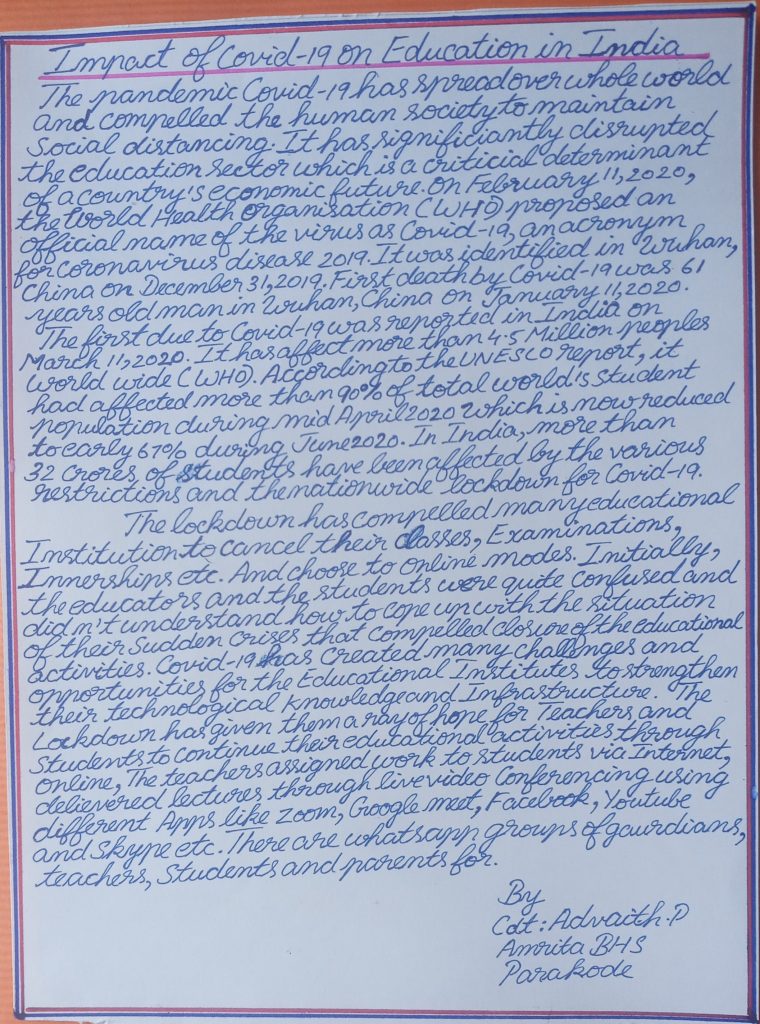 Impact of Covid-19 on Education in India
The pandemic Covid-19 has spread over whole world
and compelled the human society to maintain
Social distancing. It has significiantly disrupted
the education sector which is a criticial determinant
of a country's economic future. On February 11, 2020,
the World Health Organisation (WHO) proposed an
official name of the virus as Covid-19, an acronym
for Coronavirus disease 2019. It was identified in Wuhan,
China on December 31, 2019. First death by Covid-19 was 61
years old man in Wuhan, China on January 11, 2020.
The first due to Covid-19 was reported in India on
March 11, 2020. It has affect more than 4.5 Million peoples
world wide (WHO). According to the UNESCO report, it
had affected more than 90% of total world's student
population during mid April 2020 which is now reduced
to early 67% during June 2020. In India, more than
32 crores of students have been affected by the various
restrictions and the nationwide lockdown for Covid-19.
The lockdown has compelled many educational
Institution to cancel their classes, Examinations,
Innerships etc. And choose to online modes. Initially,
the educators and the students were quite confused and
did n't understand how to cope up with the situation
of their Sudden crises that compelled closure of the educational
activities. Covid-19 has created many challnges and
opportunities for the Educational Institutes to strengthen
their technological knowledge and Infrastructure. The
Lockdown has given them a ray of hope for Teachers and
Students to continue their educational activities through
online, The teachers assigned work to students via Internet,
delievered lectures through live video Conferencing using
different Apps like Zoom, Google meet, Facebook, Youtube
and Skype etc. There are whatsapp groups of gaurdians,
teachers, Students and parents for.
By
Cdt: Advaith.P
Amrita BHS
Parakode